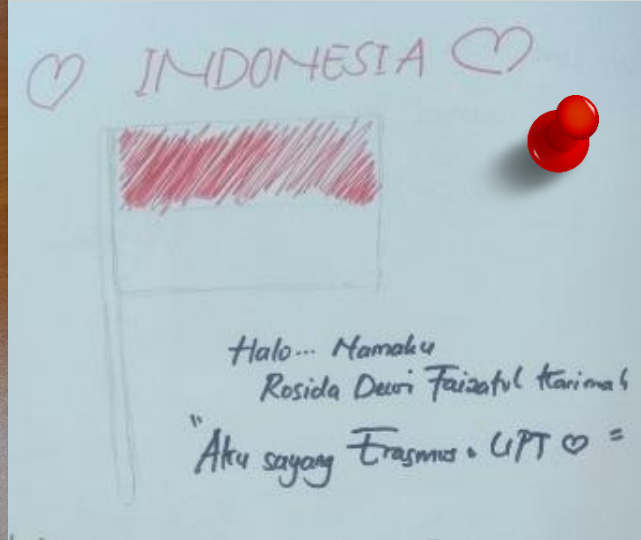 ♡ INDONESIA ♡
Halo... Namaku
Rosida Dewi Faizatul Karimah
"Aku sayang Erasmus. UPT ♡ "